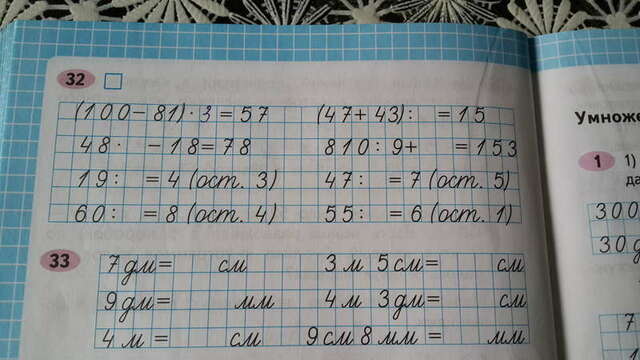 32
(100-81)·3=57 (47+43): =15
48· -18=78 810:9+ =153
19: =4(ост. 3) 47: =7(ост. 5)
60: =8(ост. 4) 55: =6(ост. 1)
33
7 дм= см 3 м 5 см= см
9 дм= мм 4 м 3 дм= см
4 м= см 9 см 8 мм= мм
Умнож
1 1)
300
30
7